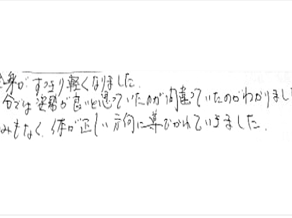 全身がすっきり軽くなりました。
分では姿勢が良いと思っていたのが間違っていたのがわかりまし
みもなく、体が正しい方向に導びかれていきました。